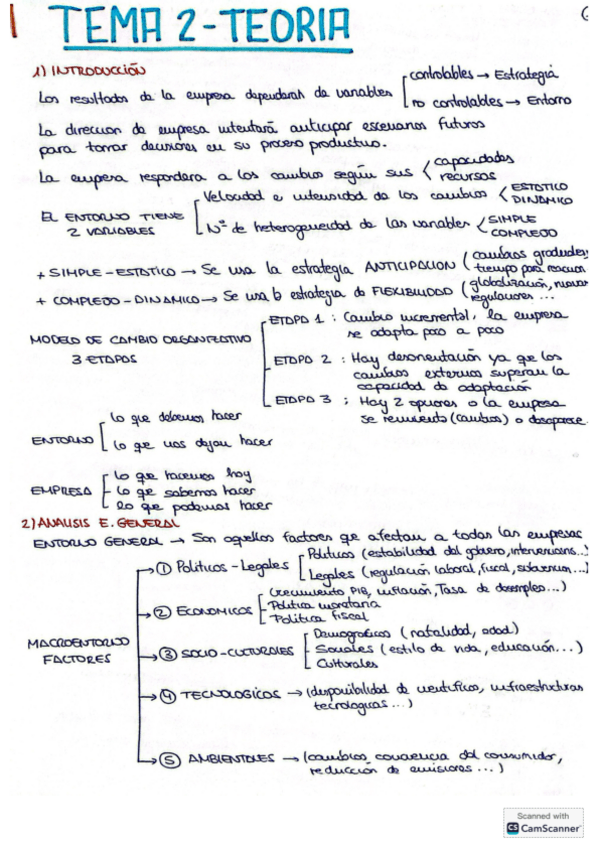 TEMA 2-TEORIA
1) INTRODUCCIÓN
Los resultados de la empresa dependerán de variables
controlables → Estrategia
no controlables → Entorno
La direccion de empresa intentará anticipar escenarios futuros
para tomar decisiones en su proceso productivo.
La empresa responderá a los cambios según sus
capacidades
recursos
EL ENTORNO TIENE
2 VARIABLES
Velocidad e intensidad de los cambios
ESTATICO
DINAMICO
Nº de heterogeneidad de las variables
SIMPLE
COMPLEJO
+ SIMPLE-ESTATICO → Se usa la estrategia ANTICIPACION (cambios graduales,
tiempo para reaccion
+ COMPLEJO-DINAMICO → Se usa la estrategia de FLEXIBILIDAD (globalización, nuevas
regulaciones ...
MODELO DE CAMBIO ORGANIZATIVO
3 ETAPAS
ETAPA 1 : Cambio incremental, la empresa
se adapta poco a poco
ETAPA 2 : Hay desorientación ya que los
cambios externos superan la
capacidad de adaptación
ETAPA 3 : Hay 2 opciones o la empresa
se reinventa (cambios) o desaparece
ENTORNO
lo que debemos hacer
lo que nos dejan hacer
EMPRESA
lo que hacemos hoy
lo que sabemos hacer
lo que podemos hacer
2) ANALISIS E. GENERAL
ENTORNO GENERAL → Son aquellos factores que afectan a todas las empresas
MACROENTORNO
FACTORES
① Políticos-Legales
Políticos (estabilidad del gobierno, intervenciones...)
Legales (regulación laboral, fiscal, subvencion...)
② ECONOMICOS
Crecimiento PIB, inflación, Tasa de desempleo...)
Politica monetaria
Politica fiscal
③ SOCIO-CULTURALES
Demograficos (natalidad, edad)
Sociales (estilo de vida, educación...)
Culturales
④ TECNOLOGICOS → (disponibilidad de cientificos, infraestructuras
tecnologicas...)
⑤ AMBIENTALES → (cambios conciencia del consumidor,
reducción de emisiones ...)
Scanned with
CS CamScanner